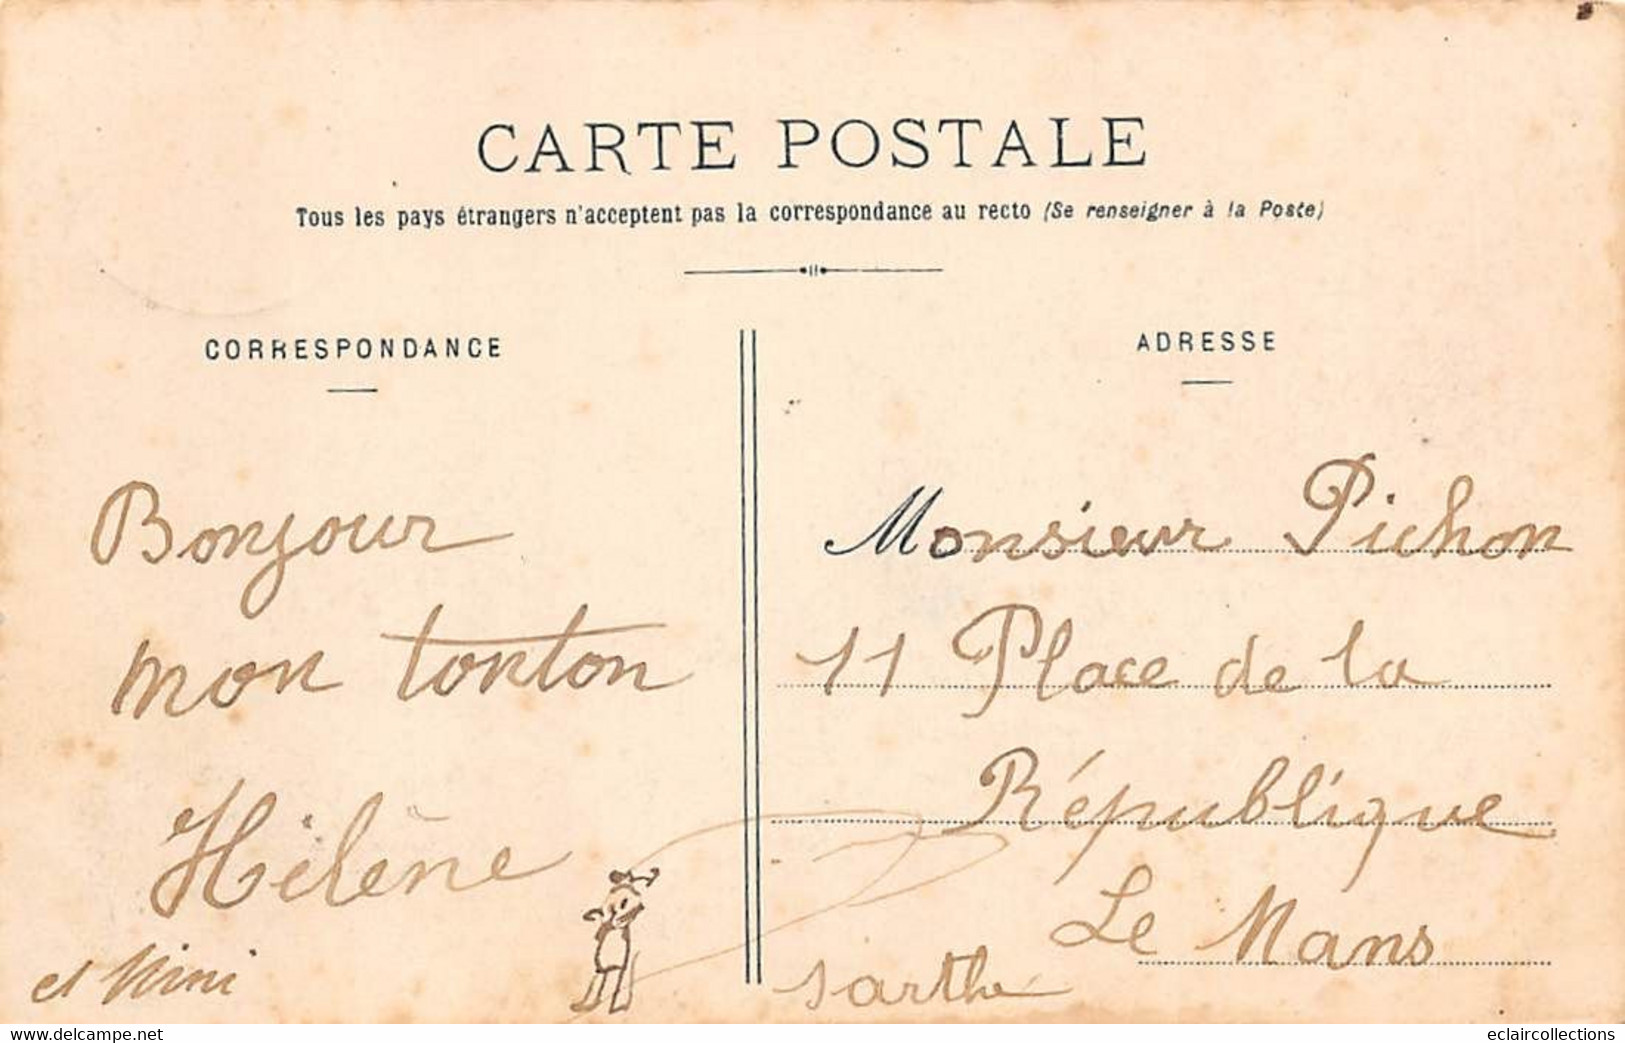 CARTE POSTALE
Tous les pays étrangers n'acceptent pas la correspondance au recto (Se renseigner à la Poste)
CORRESPONDANCE
Bonjour
mon tonton
Hélène
et Nini
ADRESSE
Monsieur Pichon
11 Place de la
République
Le Mans
Sarthe
www.delcampe.net
eclaircollections